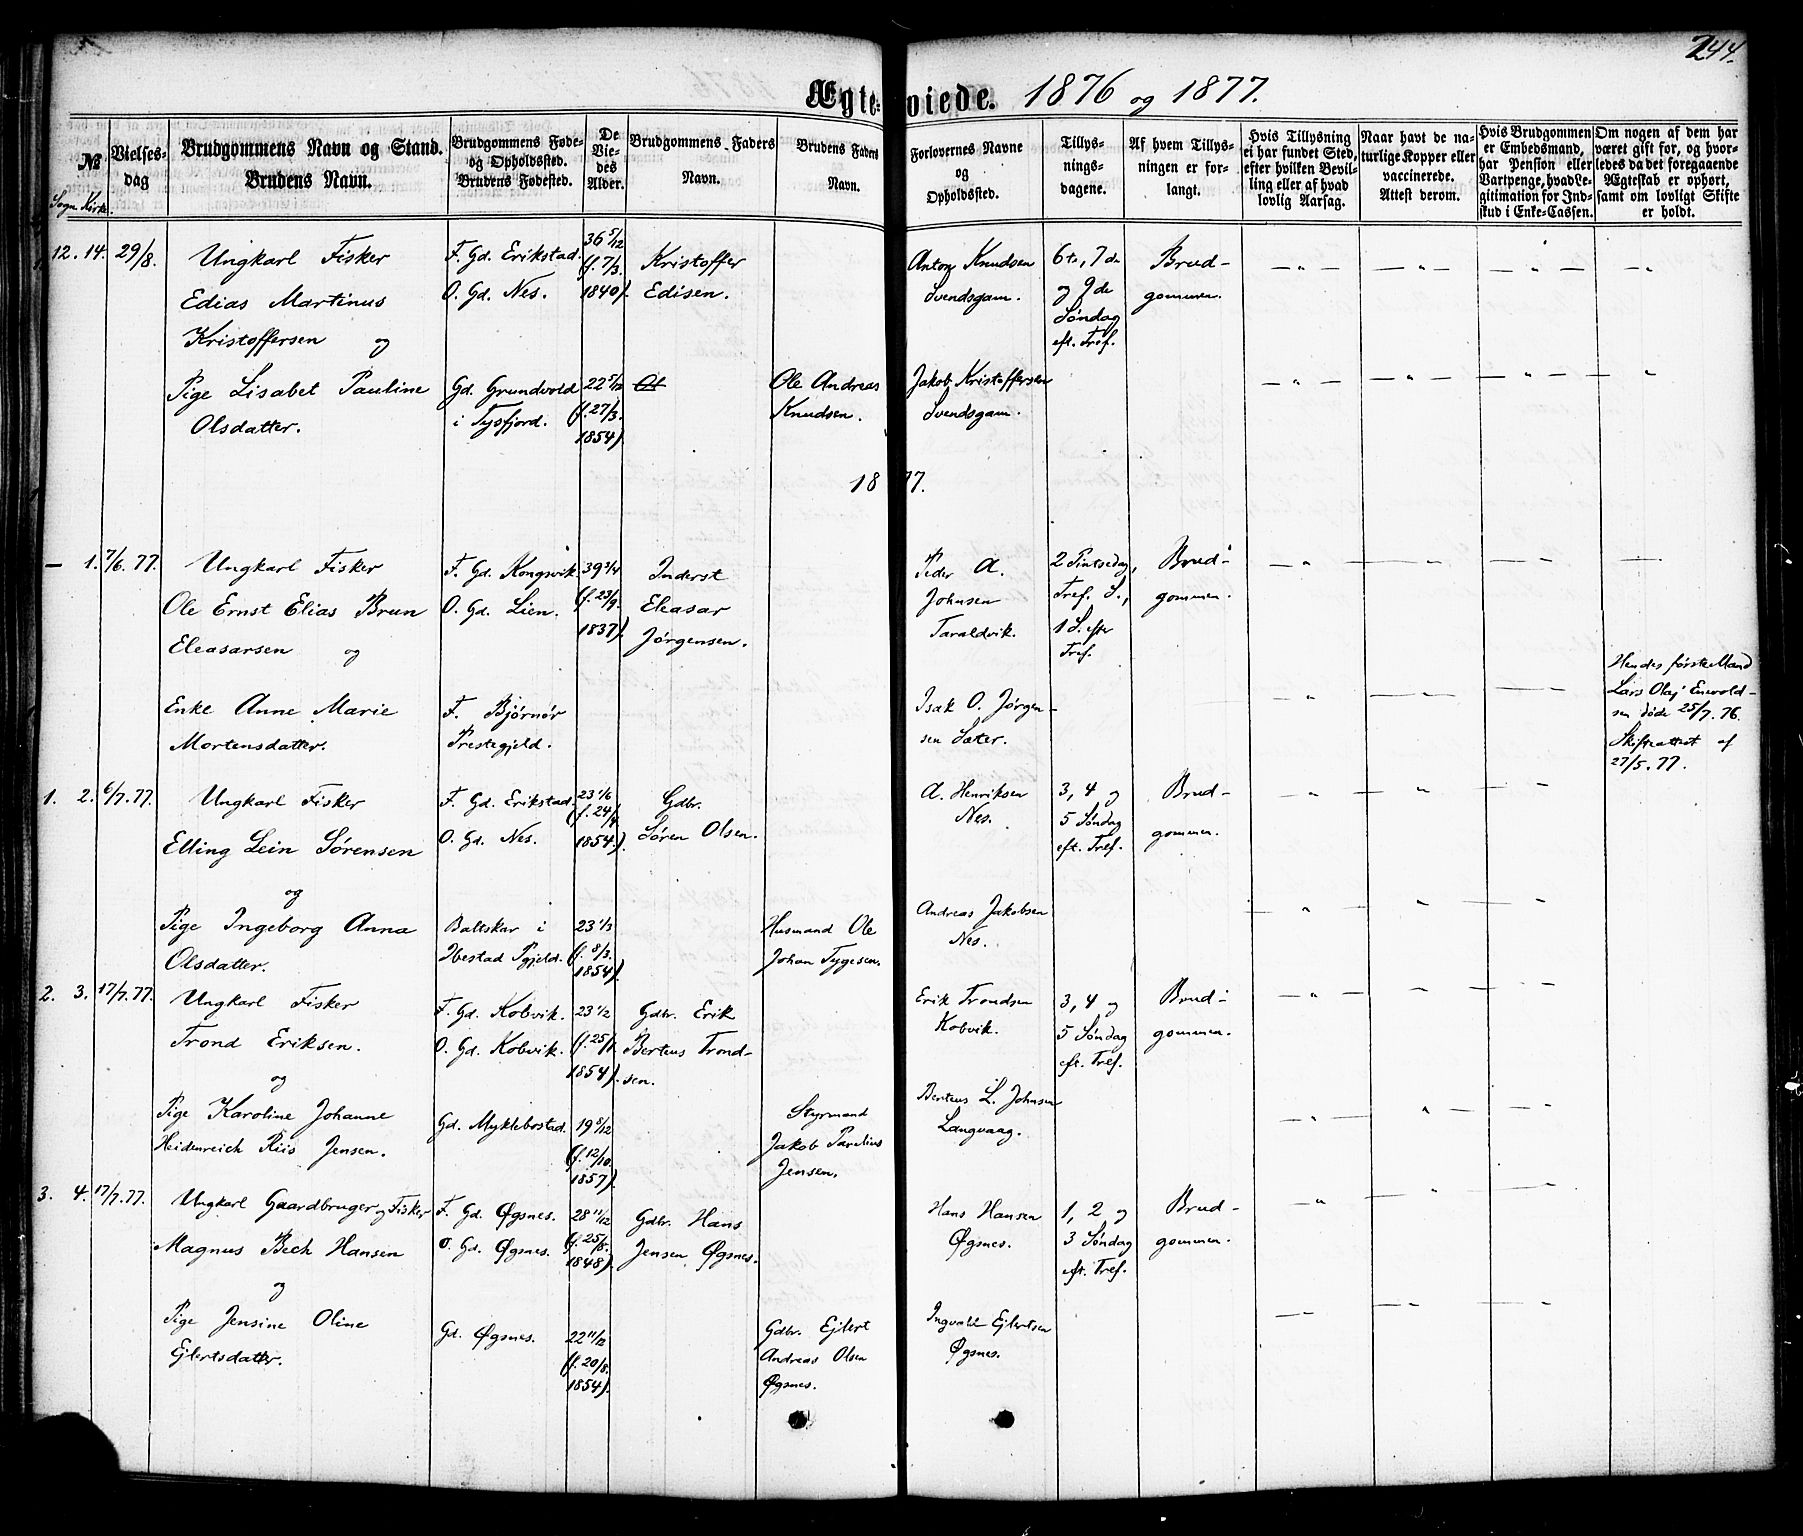 244.
Ægteviede. 1876 og 1877.
No
Sogn Kirke.
Vielses-
dag
Brudgommens Navn og Stand.
Brudens Navn.
Brudgommens Føde-
og Opholdssted.
Brudens Fødested.
De
Vie-
des
Alder.
Brudgommens Faders
Navn.
Brudens Faders
Navn.
Forlovernes Navne
og
Opholdssted.
Tillys-
nings-
dagene.
Af hvem Tillys-
ningen er for-
langt.
Hvis Tillysning
ei har fundet Sted,
efter hvilken Bevil-
ling eller af hvad
lovlig Aarsag.
Naar havt de na-
turlige Kopper eller
vaccinerede.
Attest derom.
Hvis Brudgommen
er Embedsmand,
har Pension eller
Vartpenge, hvad Le-
gitimation for Ind-
skud i Enke-Cassen.
Om nogen af dem har
været gift før, og hvor-
ledes da det foregaaende
Ægteskab er ophørt,
samt om lovligt Skifte
er holdt.
12. 14. 29/8.
Ungkarl Fisker
Edias Martinus
Kristoffersen og
F. Gd. Erikstad.
O. Gd. Nes.
36 5/12
(f. 7/3.
1840).
Kristoffer
Edisen.
Anton Knudsen
Svendsgam.
6te, 7de
og 9de
Søndag
eft. Tref.
Brud-
gommen.
Pige Lisabet Pauline
Olsdatter.
Gd. Grundvold
i Tysfjord.
22 5/12
(f. 27/3.
1854).
Ol
Ole Andreas
Knudsen.
Jakob Kristoffersen
Svendsgam.
1877.
— 1. 7/6. 77.
Ungkarl Fisker
Ole Ernst Elias Brun
Eleasarsen og
F. Gd. Kongsvik.
O. Gd. Lien.
39 3/4
(f. 23/9.
1837).
Inderst
Eleasar
Jørgensen.
Peder A.
Johnsen
Taraldvik.
2 Pintsedag,
Tref. S.,
1 S. efter
Tref.
Brud-
gommen.
Enke Anne Marie
Mortensdatter.
F. Bjørnør
Prestegjeld.
Isak O. Jørgen-
sen Sæter.
Hendes første Mand
Lars Olaj Enevold-
sen døde 25/7. 76.
Skifteattest af
27/5. 77.
1. 2. 6/7. 77.
Ungkarl Fisker
Elling Lein Sørensen
og
F. Gd. Erikstad.
O. Gd. Nes.
23 1/6
(f. 24/4
1854).
Gdbr.
Søren Olsen.
A. Henriksen
Nes.
3, 4 og
5 Søndag
eft. Tref.
Brud-
gommen.
Pige Ingeborg Anna
Olsdatter.
Baltskar i
Ibestad Pgjeld.
23 1/3
(f. 8/3.
1854).
Husmand Ole
Johan Tygesen.
Andreas Jakobsen
Nes.
2. 3. 17/7. 77.
Ungkarl Fisker
Trond Eriksen.
og
F. Gd. Kobvik.
O. Gd. Kobvik.
23 1/2
(f. 25/1
1854).
Gdbr. Erik
Berteus Trond-
sen.
Erik Trondsen
Kobvik.
3, 4 og
5 Søndag
eft. Tref.
Brud-
gommen.
Pige Karoline Johanne
Heidenreich Riis Jensen.
Gd. Myklebostad.
19 8/12
(f. 12/10.
1857).
Styrmand
Jakob Parelius
Jensen.
Berteus L. Johnsen
Langvaag.
3. 4. 17/7. 77.
Ungkarl Gaardbruger og Fisker
Magnus Bech Hansen
og
F. Gd. Øgsnes.
O. Gd. Øgsnes.
28 11/12
(f. 25/8.
1848).
Gdbr. Hans
Jensen Øgsnes.
Hans Hansen
Øgsnes.
1, 2 og
3 Søndag
eft. Tref.
Brud-
gommen.
Pige Jensine Oline
Ejlertsdatter.
Gd. Øgsnes.
22 11/12
(f. 20/8.
1854).
Gdbr. Ejlert
Andreas Olsen
Øgsnes.
Ingvald Ejlertsen
Øgsnes.